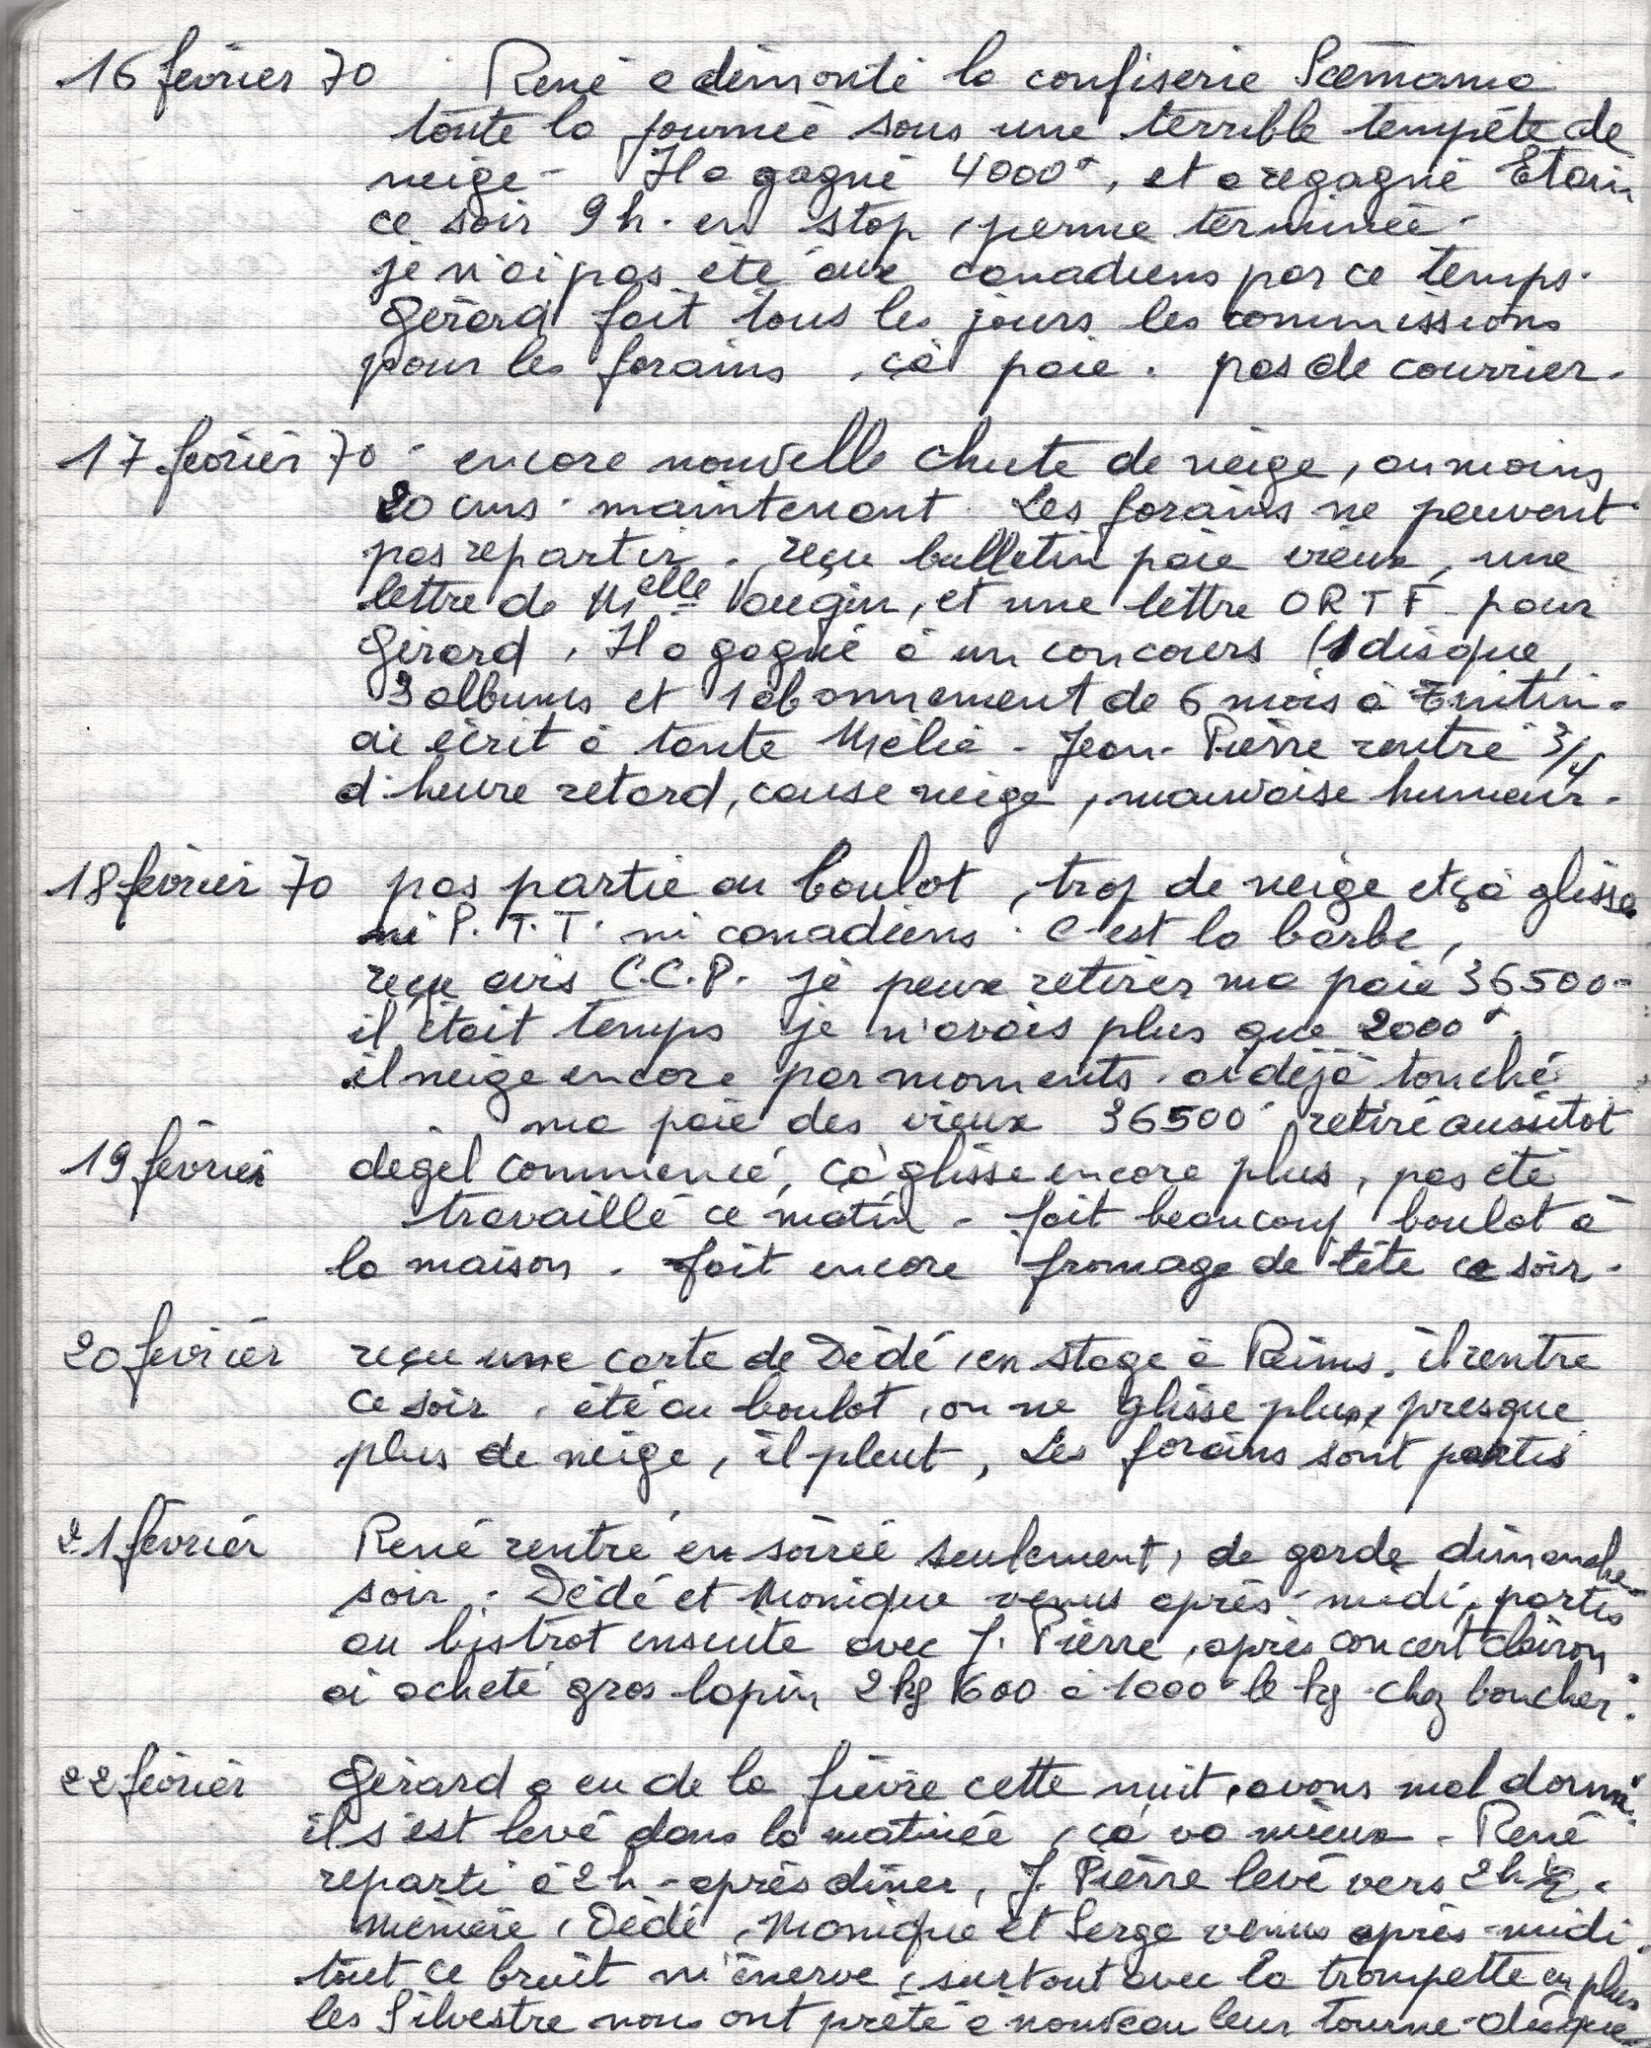 16 février 70 . René a démonté la confiserie Scemama
toute la journée sous une terrible tempête de
neige - Il a gagné 4000 F, et a regagné Etain
ce soir 9 h. en stop, perme terminée.
je n'ai pas été aux canadiens par ce temps.
Gérard fait tous les jours les commissions
pour les forains, çà paie. pas de courrier.
17 février 70 - encore nouvelle chute de neige, au moins
20 cms maintenant. Les forains ne peuvent
pas repartir. reçu bulletin paie vieux, une
lettre de Melle Vaugin, et une lettre ORTF pour
Gérard, Il a gagné à un concours (1 disque,
3 albums et 1 abonnement de 6 mois à Tintin.
ai écrit à tante Mélie - Jean-Pierre rentré 3/4
d'heure retard, cause neige, mauvaise humeur.
18 février 70 pas partie au boulot, trop de neige et çà glisse.
ni P.T.T. ni canadiens. C'est la barbe,
reçu avis C.C.P. je peux retirer ma paie 36500 -
il était temps je n'avais plus que 2000 F.
il neige encore par moments. ai déjà touché
ma paie des vieux 36500 retiré aussitôt
19 février dégel commencé, çà glisse encore plus, pas été
travaillé ce matin - fait beaucoup boulot à
la maison. fait encore fromage de tête ce soir.
20 février reçu une carte de Dédé, en stage à Reims. il rentre
ce soir, été au boulot, on ne glisse plus, presque
plus de neige, il pleut, Les forains sont partis
21 février René rentré en soirée seulement, de garde dimanche
soir. Dédé et Monique venus après-midi, partis
au bistrot ensuite avec J. Pierre, après concert clairon
ai acheté gros lapin 2 kg 600 à 1000 le kg chez boucher.
22 février Gérard a eu de la fièvre cette nuit, avons mal dormi.
il s'est levé dans la matinée, çà va mieux. René
reparti à 2 h - après dîner, J. Pierre levé vers 2 h 1/2.
mémère, Dédé, Monique et Serge venus après-midi.
tout ce bruit m'énerve, surtout avec la trompette en plus
les Silvestre nous ont prêté à nouveau leur tourne-disques